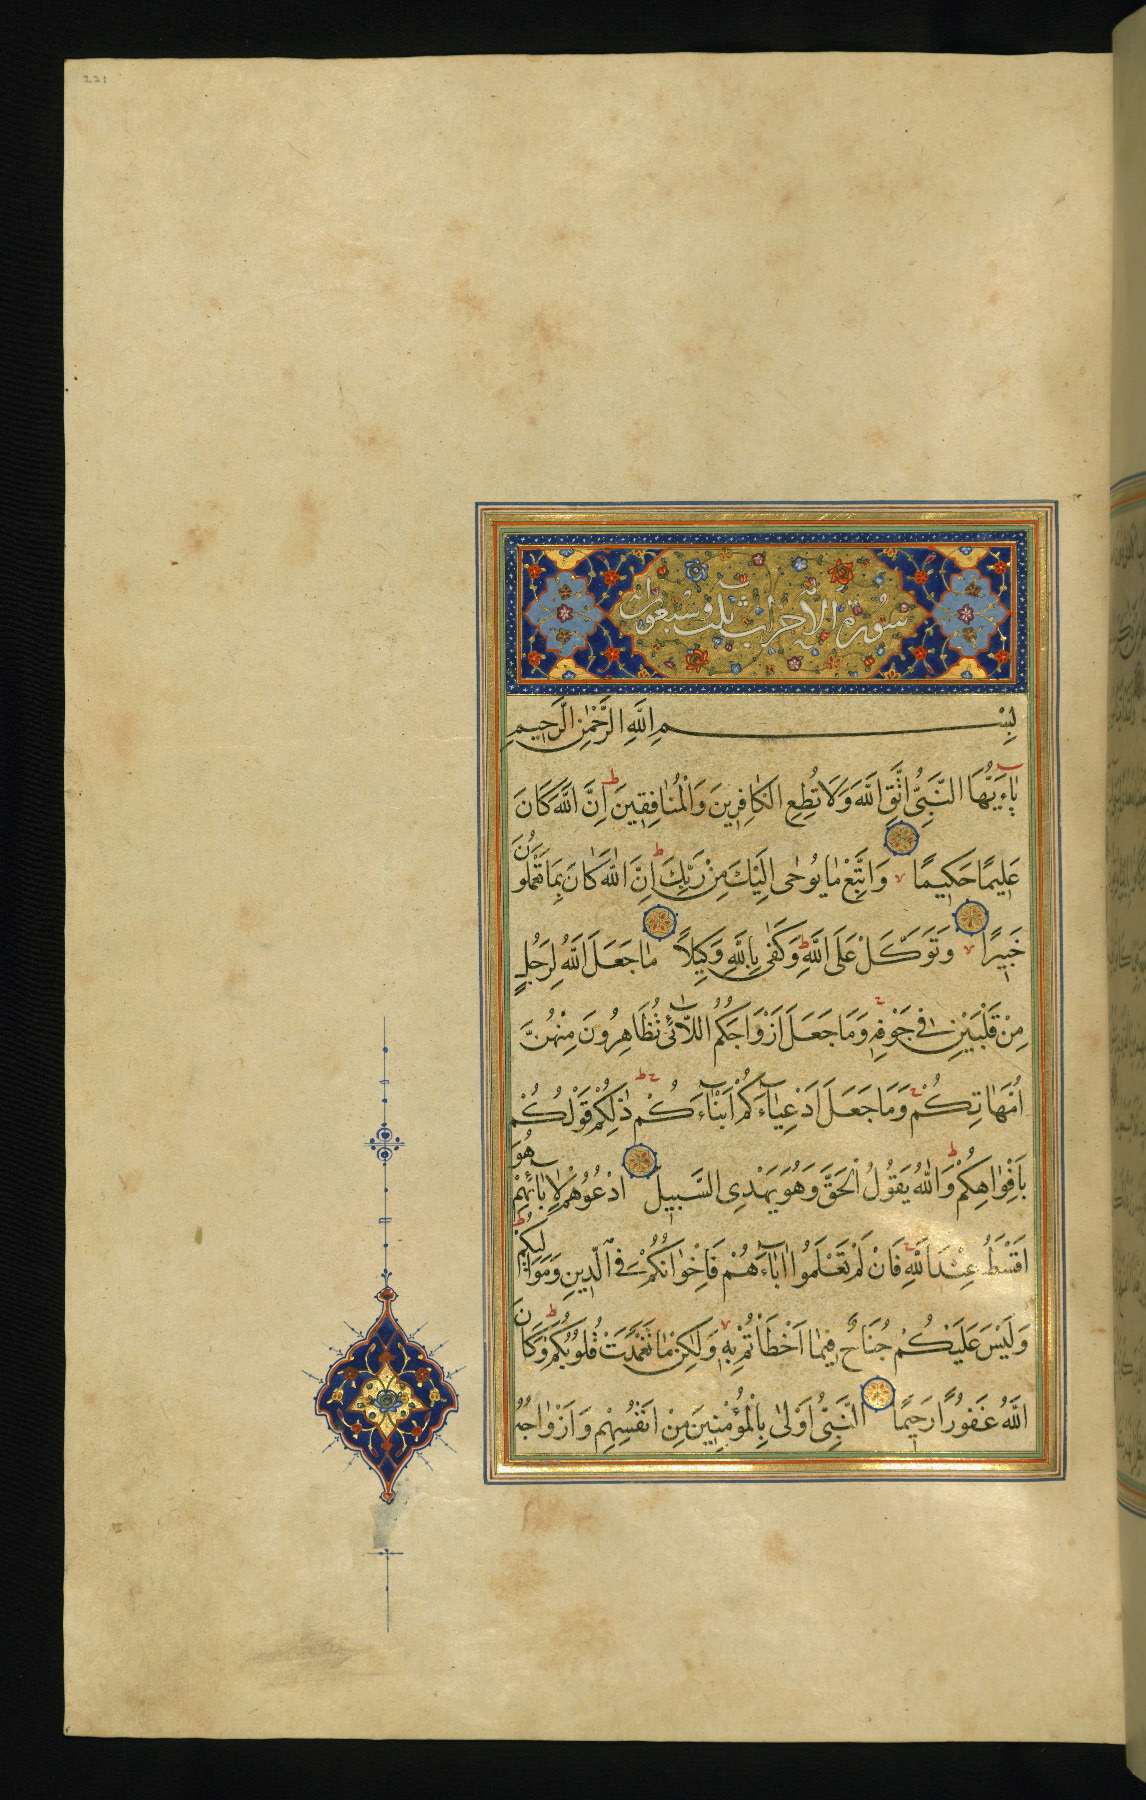 221
سورة الاحزاب ثلث وسبعون اية
بِسْمِ اللَّهِ الرَّحْمٰنِ الرَّحِيمِ
يَاءَيُّهَا النَّبِيُّ اتَّقِ اللَّهَ وَلَا تُطِعِ الْكَافِرِينَ وَالْمُنَافِقِينَ اِنَّ اللَّهَ كَانَ
عَلِيمًا حَكِيمًا وَاتَّبِعْ مَا يُوحٰى اِلَيْكَ مِنْ رَبِّكَ اِنَّ اللَّهَ كَانَ بِمَا تَعْمَلُونَ
خَبِيرًا وَتَوَكَّلْ عَلَى اللَّهِ وَكَفٰى بِاللَّهِ وَكِيلًا مَا جَعَلَ اللَّهُ لِرَجُلٍ
مِنْ قَلْبَيْنِ فِي جَوْفِهِ وَمَا جَعَلَ اَزْوَاجَكُمُ اللَّائِي تُظَاهِرُونَ مِنْهُنَّ
اُمَّهَاتِكُمْ وَمَا جَعَلَ اَدْعِيَاءَكُمْ اَبْنَاءَكُمْ ذٰلِكُمْ قَوْلُكُمْ
بِاَفْوَاهِكُمْ وَاللَّهُ يَقُولُ الْحَقَّ وَهُوَ يَهْدِي السَّبِيلَ اُدْعُوهُمْ لِاٰبَائِهِمْ هُوَ
اَقْسَطُ عِنْدَ اللَّهِ فَاِنْ لَمْ تَعْلَمُوا اٰبَاءَهُمْ فَاِخْوَانُكُمْ فِي الدِّينِ وَمَوَالِيكُمْ
وَلَيْسَ عَلَيْكُمْ جُنَاحٌ فِيمَا اَخْطَاْتُمْ بِهِ وَلٰكِنْ مَا تَعَمَّدَتْ قُلُوبُكُمْ وَكَانَ
اللَّهُ غَفُورًا رَحِيمًا اَلنَّبِيُّ اَوْلٰى بِالْمُؤْمِنِينَ مِنْ اَنْفُسِهِمْ وَاَزْوَاجُهُ